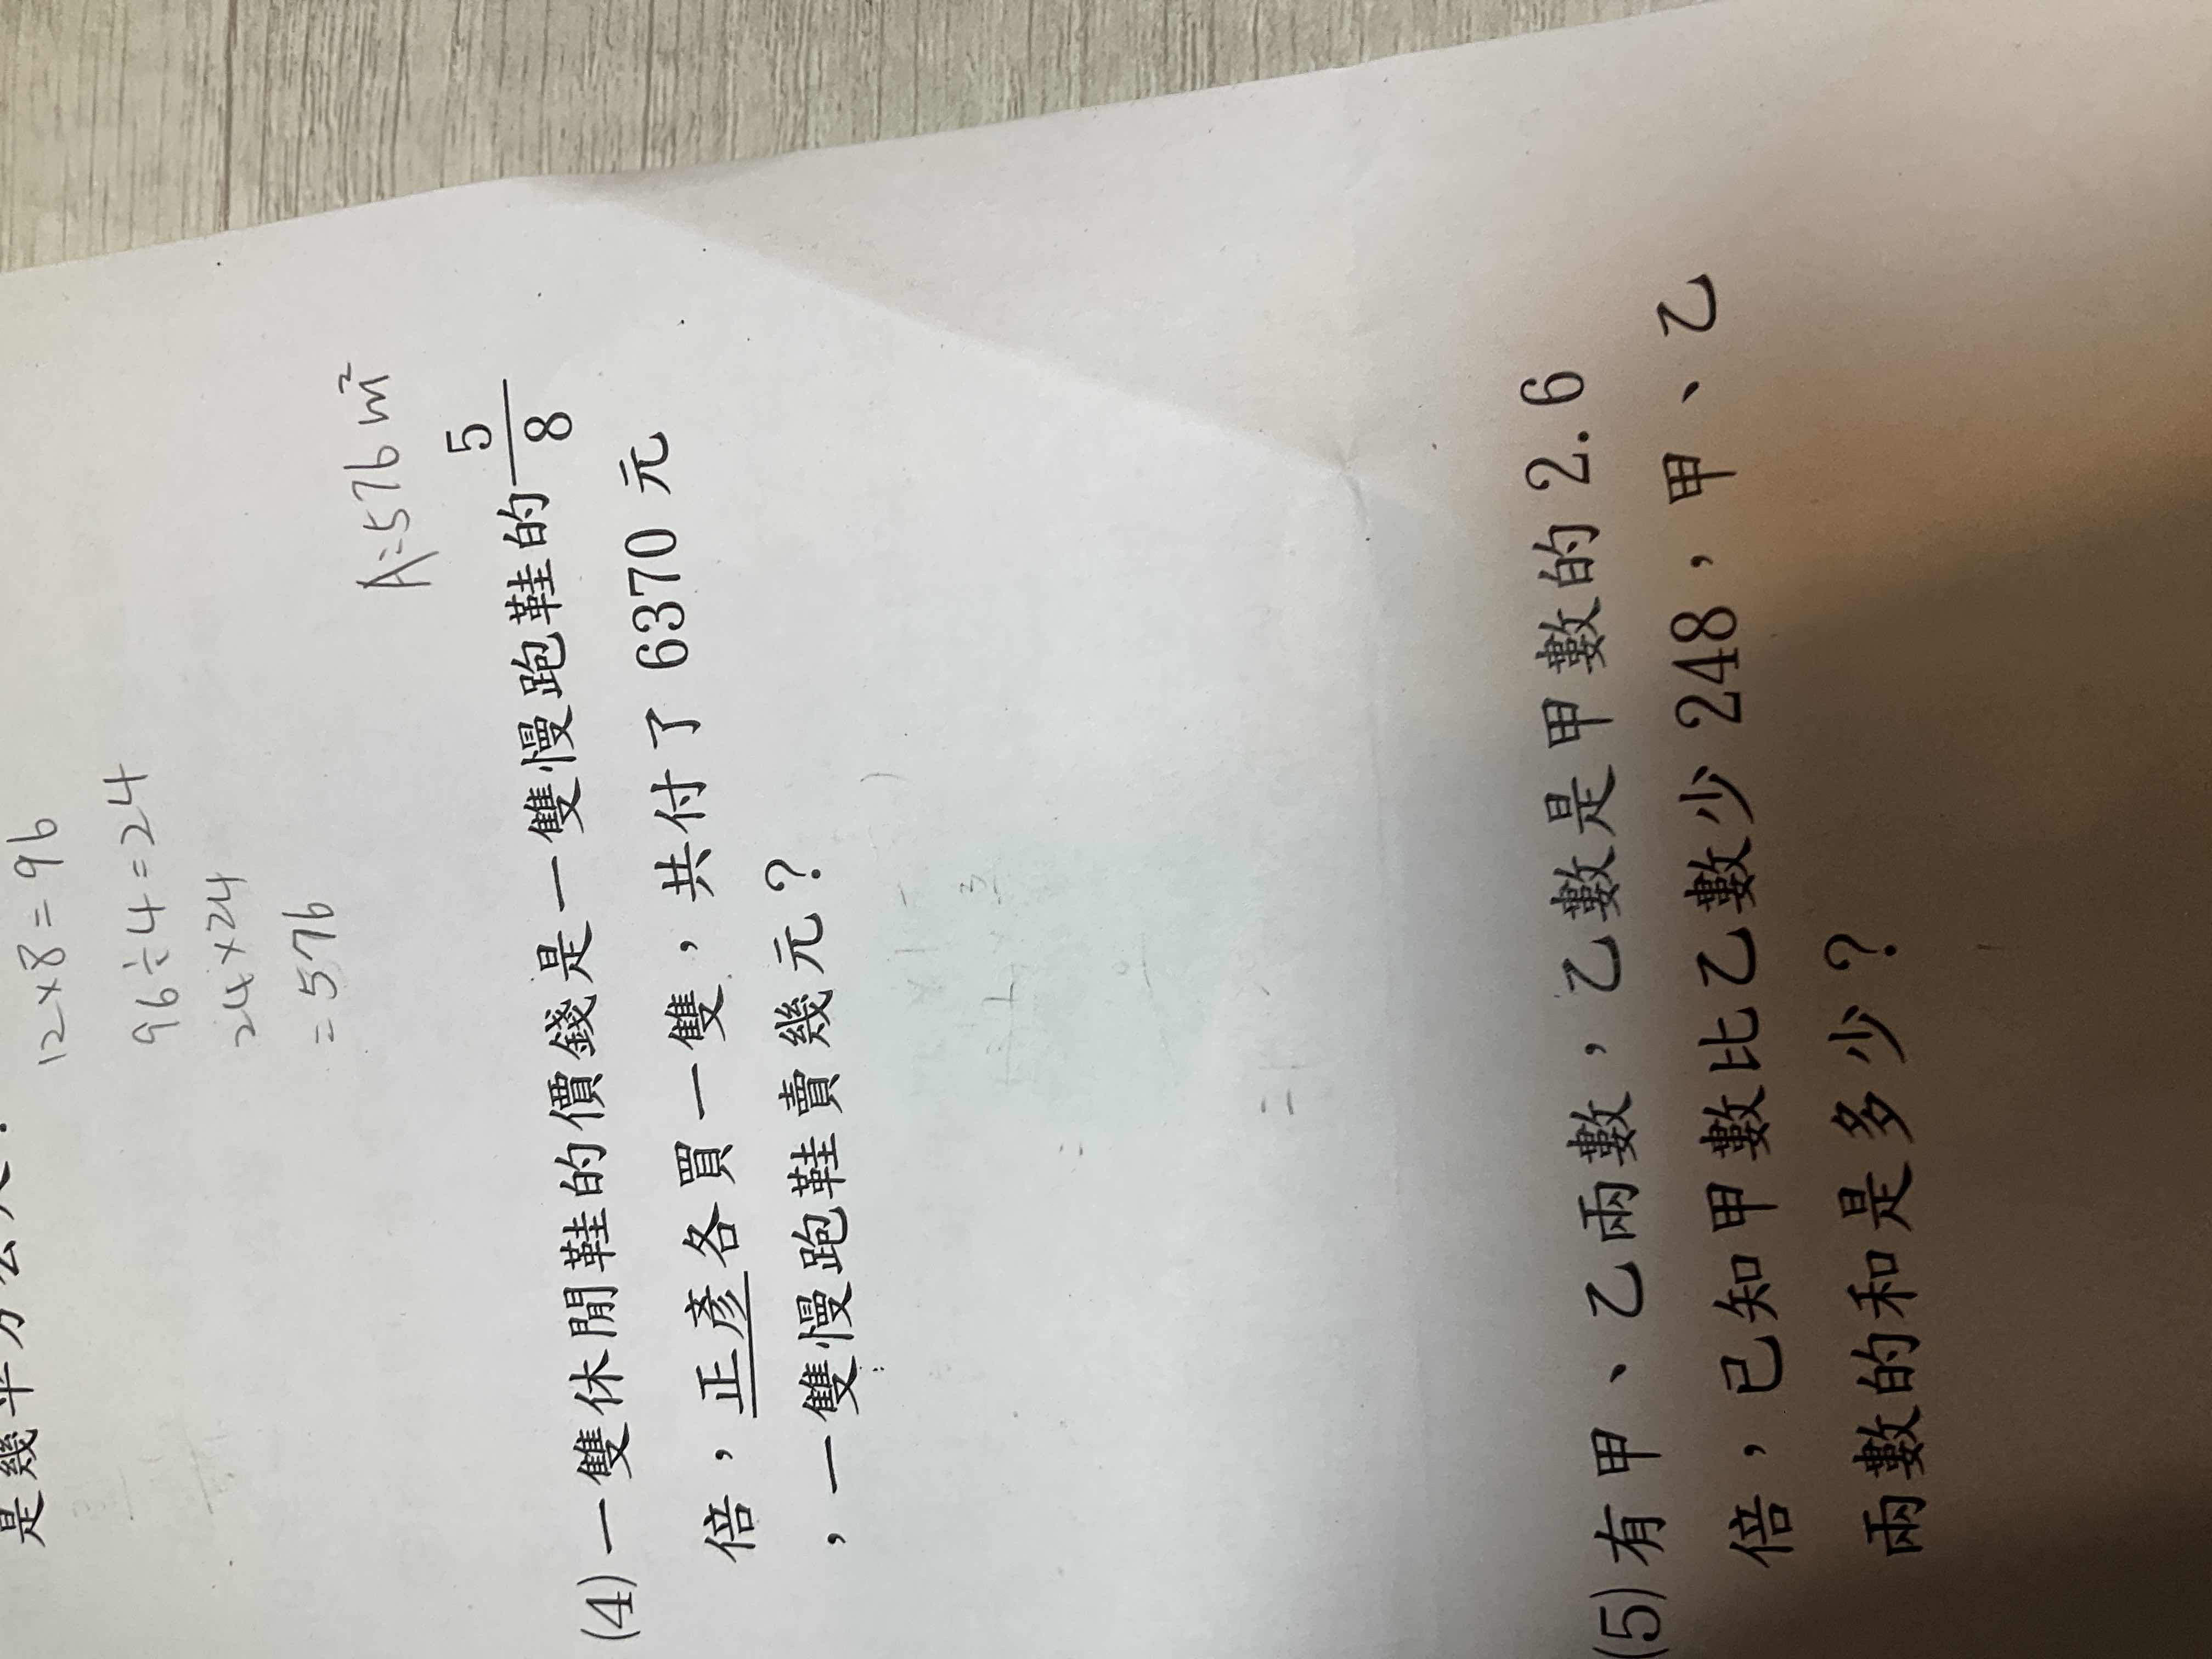 是幾平方公尺?
12×8=96
96÷4=24
24×24
=576
A:576m²
(4)一雙休閒鞋的價錢是一雙慢跑鞋的5/8
倍，正彥各買一雙，共付了6370元
，一雙慢跑鞋賣幾元？
(5)有甲、乙兩數，乙數是甲數的2.6
倍，已知甲數比乙數少248，甲、乙
兩數的和是多少？